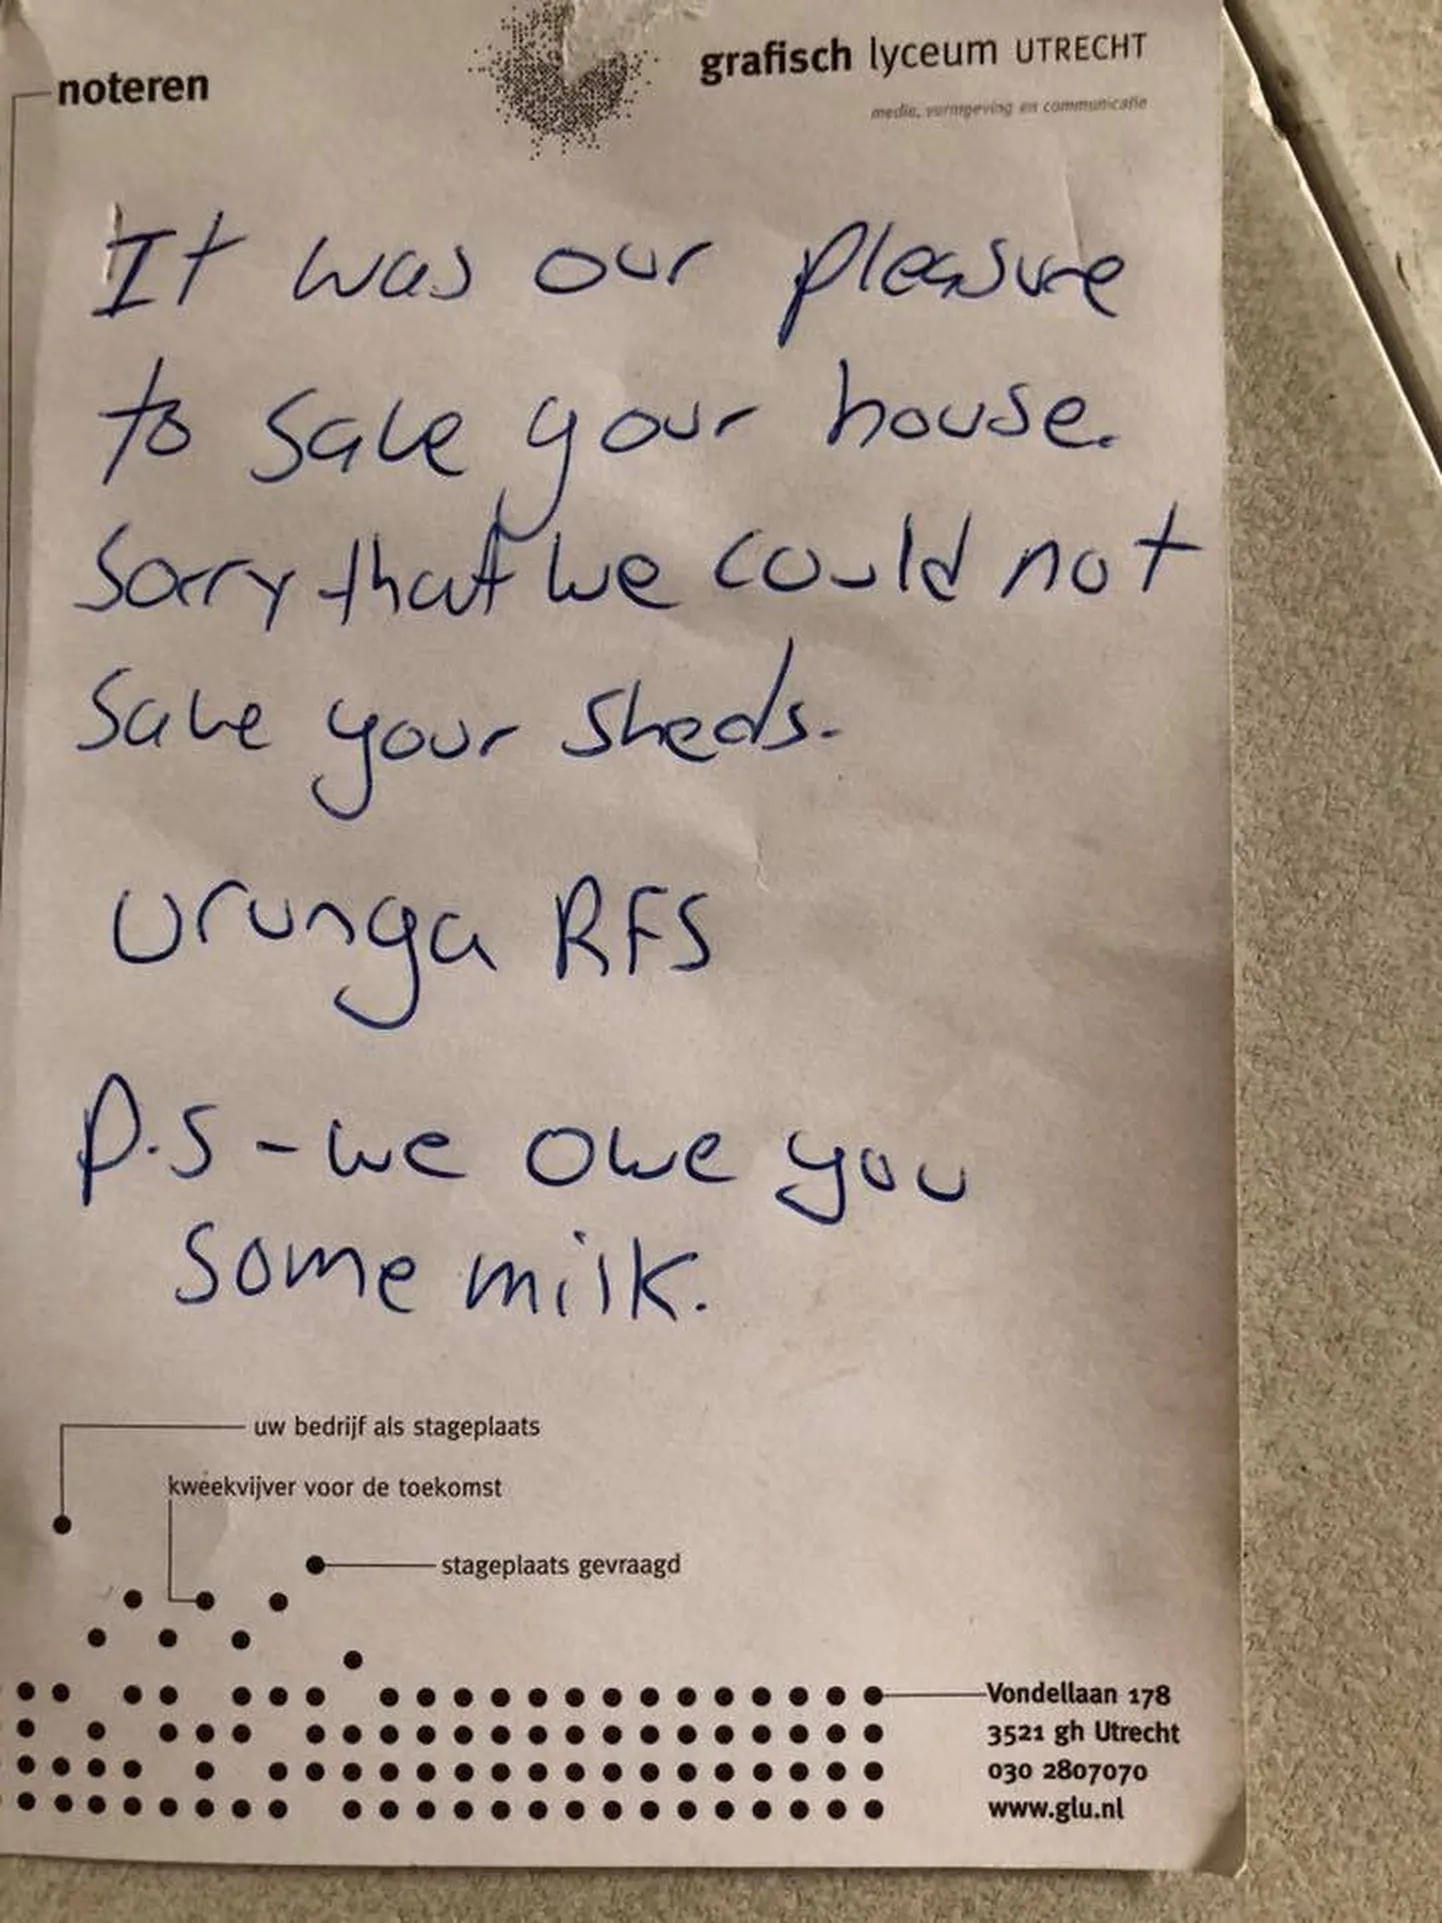 noteren
grafisch lyceum UTRECHT
media, vormgeving en communicatie
It was our pleasure
to save your house.
Sorry that we could not
save your sheds.
Urunga RFS
P.S - we owe you
some milk.
uw bedrijf als stageplaats
kweekvijver voor de toekomst
stageplaats gevraagd
Vondellaan 178
3521 gh Utrecht
030 2807070
www.glu.nl